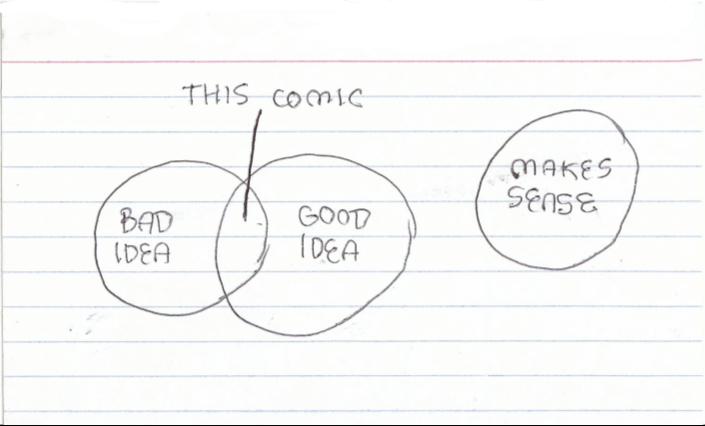 THIS COMIC
BAD
IDEA
GOOD
IDEA
MAKES
SENSE